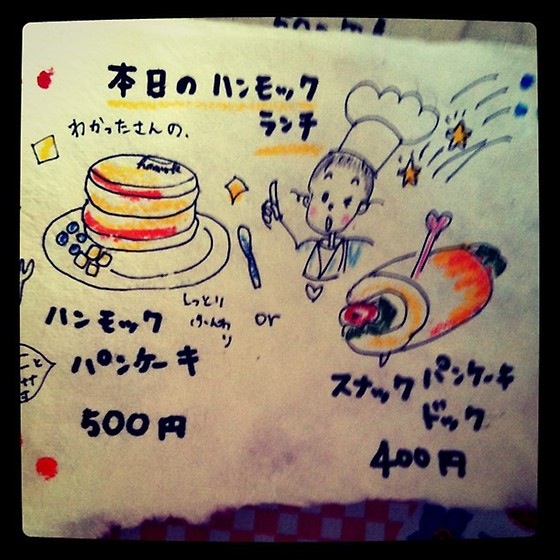 本日のハンモック
ランチ
わかったさんの、
ハンモック
パンケーキ
しっとり
ふんわり
500円
or
スナックパンケーキ
ドック
400円